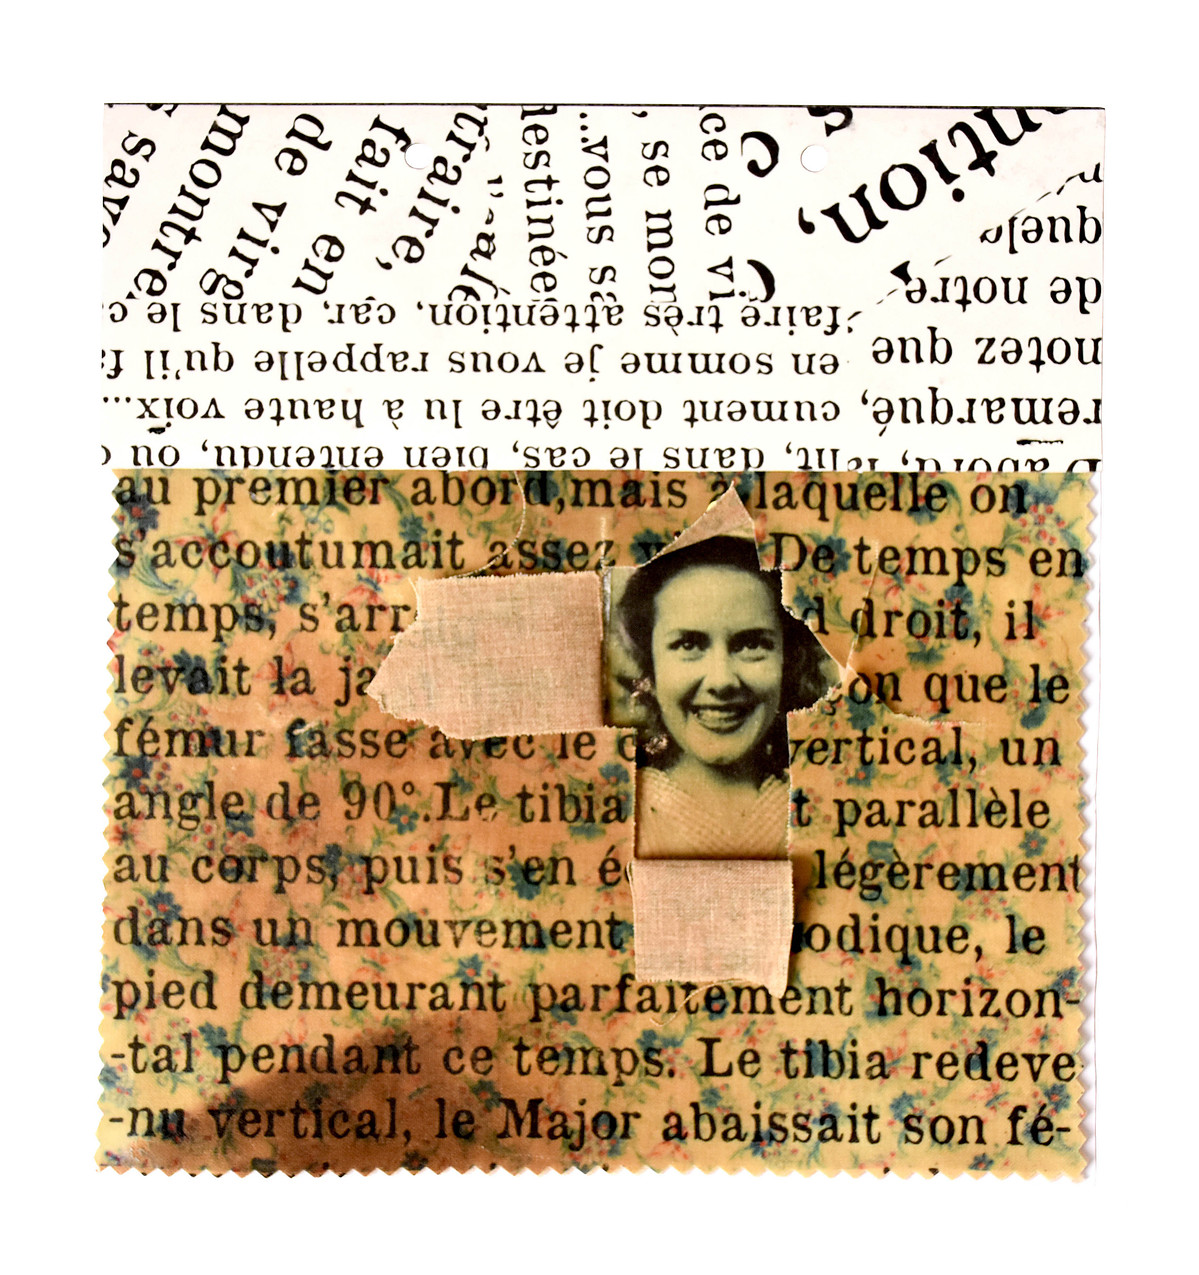 montre
de virg
fait en
traire,
estinée
...vous sa
, se mon
ce de vi
ntion,
D'abord, dans le cas, bien entendu, où
remarqué, cument doit être lu à haute voix...
notez que en somme je vous rappelle qu'il fa
de notre
faire très attention, car, dans le c
quel
au premier abord, mais à laquelle on
s'accoutumait assez De temps en
temps, s'arr d droit, il
levait la ja çon que le
fémur fasse avec le vertical, un
angle de 90°. Le tibia t parallèle
au corps, puis s'en é légèrement
dans un mouvement odique, le
pied demeurant parfaitement horizon-
-tal pendant ce temps. Le tibia redeve
-nu vertical, le Major abaissait son fé-